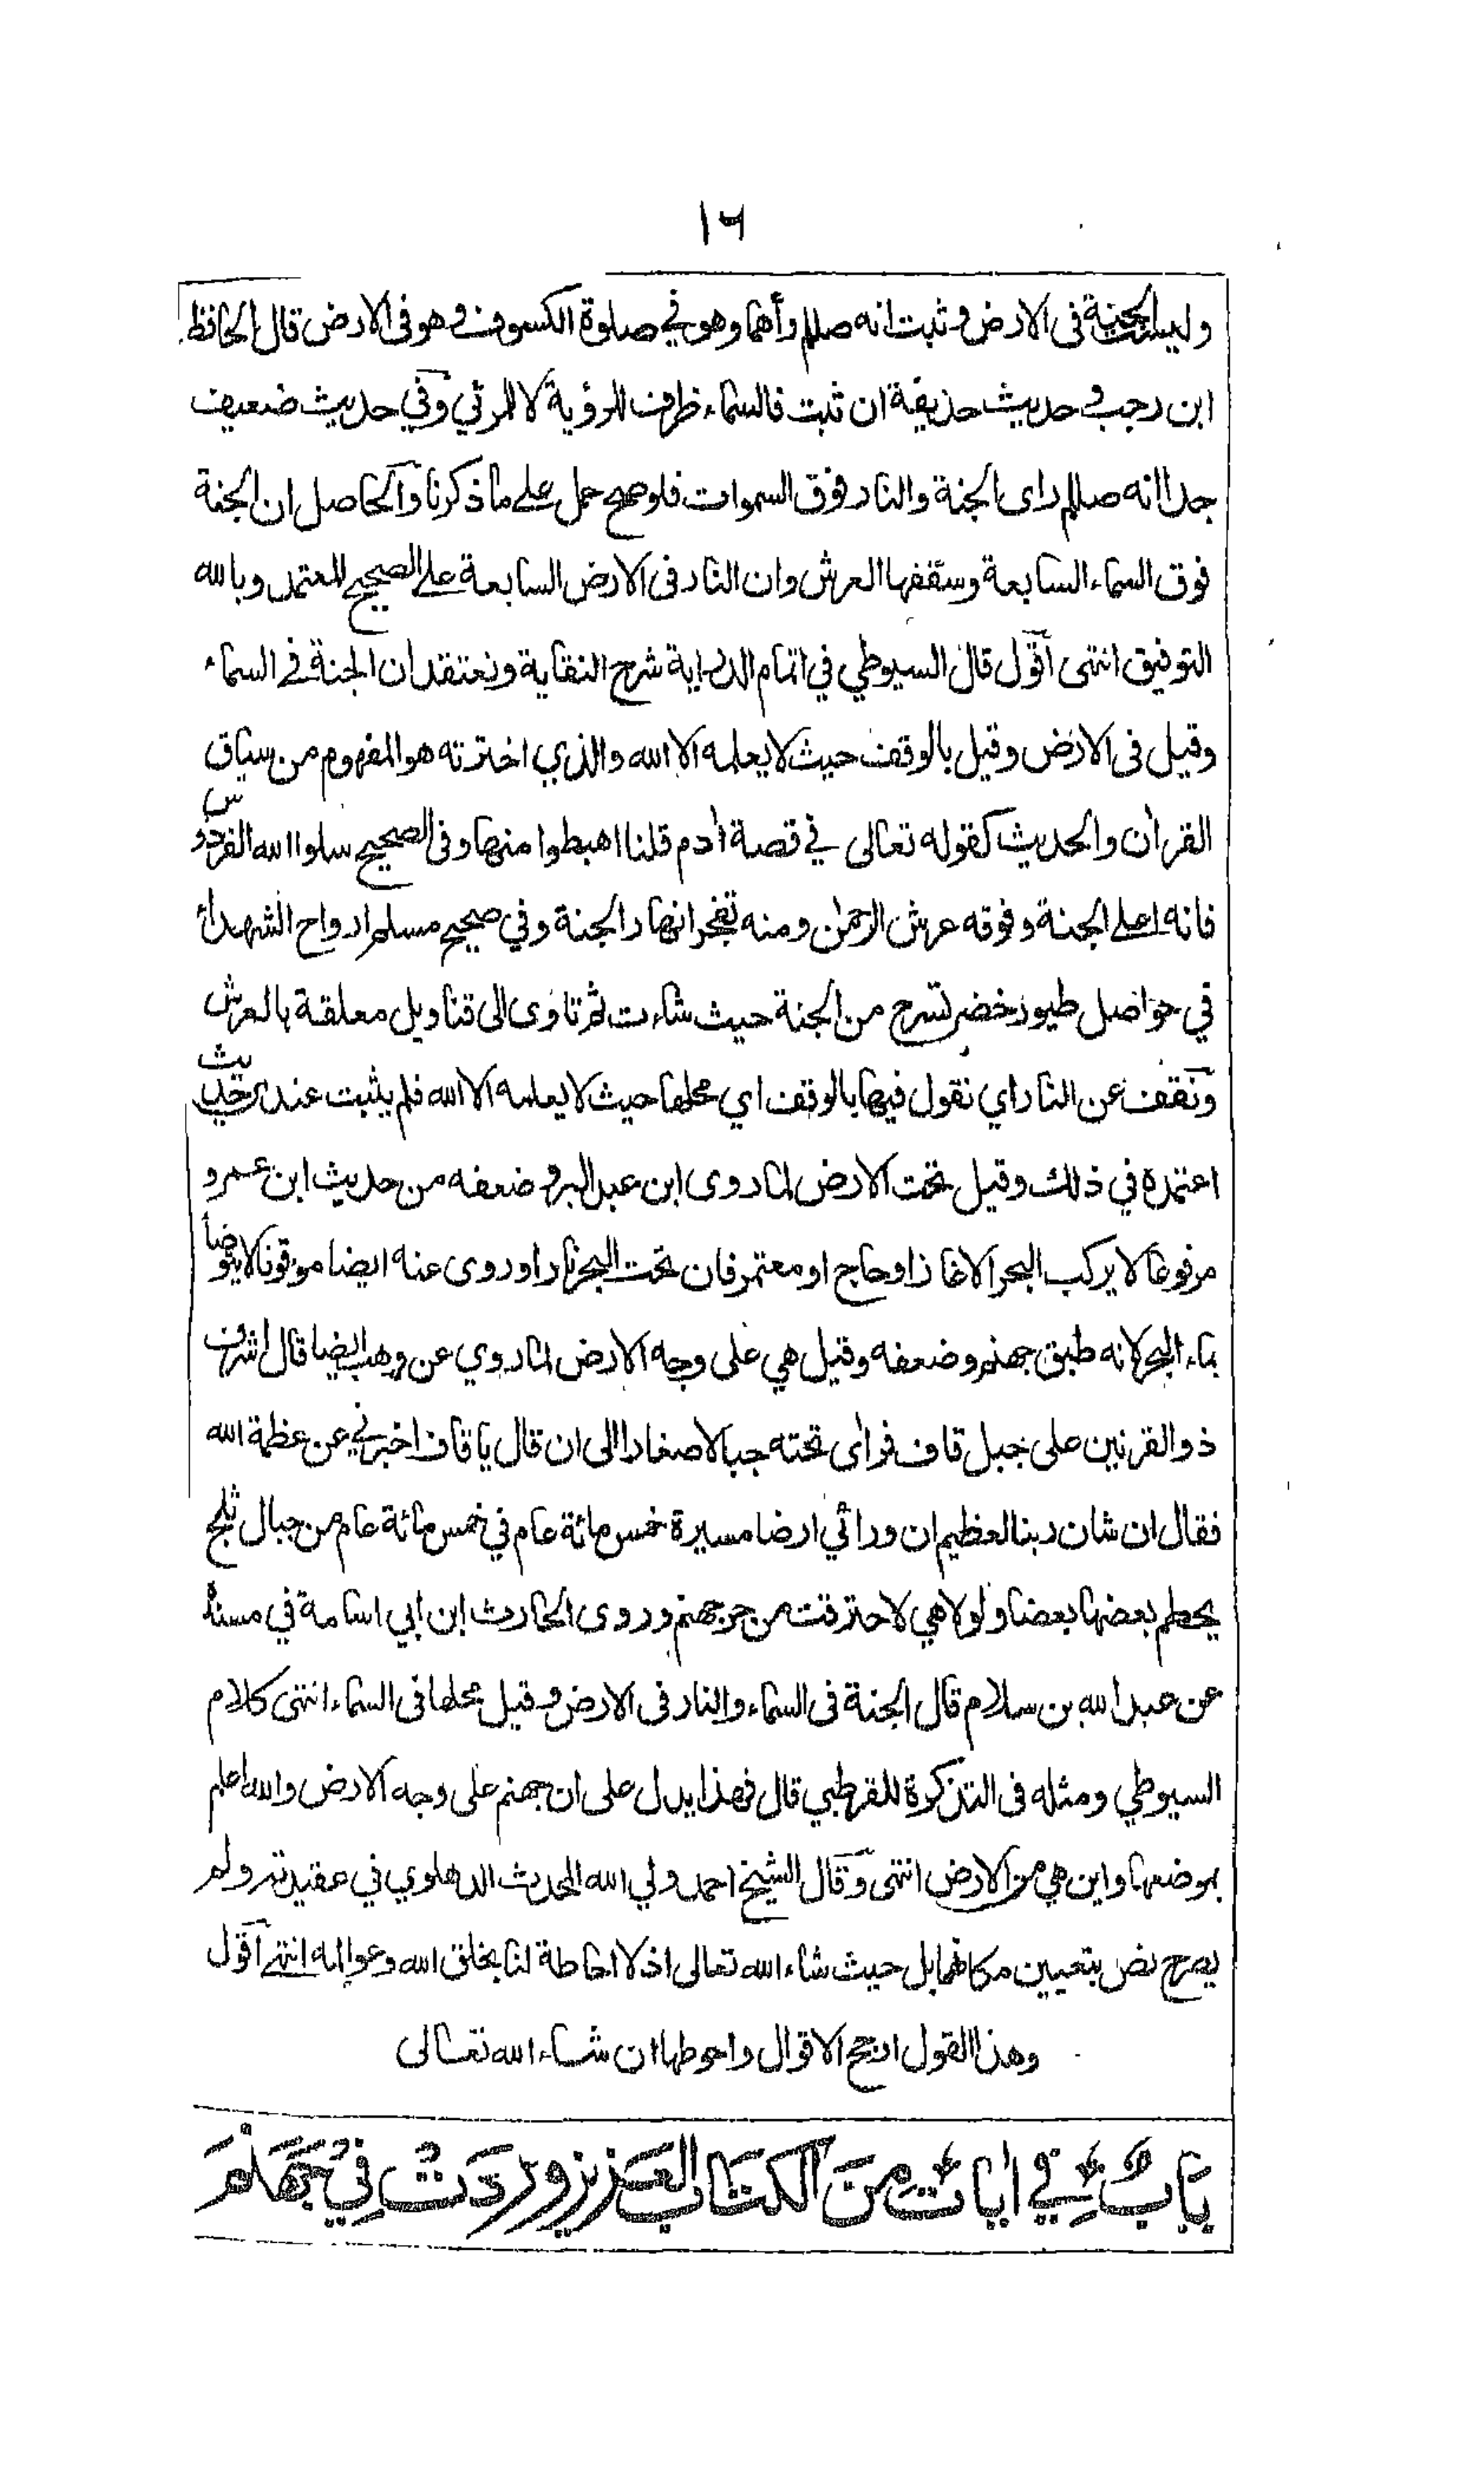 ١٦
وليست الجنة فى الارض و ثبت انه صللم رأهما وهو في صلوة الكسوف وهو فى الارض قال الحافظ
ابن رجب و حديث حذيفة ان ثبت فالسماء ظرف للرؤية لا للمرئي وفي حديث ضعيف
جدا انه صللم راى الجنة والنار فوق السموات فلو صح حمل على ما ذكرنا والحاصل ان الجنة
فوق السماء السابعة وسقفها العرش وان النار فى الارض السابعة على الصحيح المعتمد وبالله
التوفيق انتهى اقول قال السيوطي في اتمام الدراية شرح النقاية ونعتقد ان الجنة في السماء
وقيل فى الارض وقيل بالوقف حيث لا يعلمه الا الله والذي اخترته هو المفهوم من سياق
القرأن والحديث كقوله تعالى في قصة أدم قلنا اهبطوا منها وفى الصحيح سلوا الله الفردوس
فانه اعلى الجنة وفوقه عرش الرحمن ومنه تفجر انهار الجنة وفي صحيح مسلم ارواح الشهداء
في حواصل طيور خضر تسرح من الجنة حيث شاءت ثم تاوى الى قناديل معلقة بالعرش
ونقف عن النار اي نقول فيها بالوقف اي محلها حيث لا يعلمه الا الله فلم يثبت عندى حديث
اعتمده في ذلك وقيل تحت الارض لما روى ابن عبد البر و ضعفه من حديث ابن عمرو
مرفوعا لا يركب البحر الا غاز او حاج او معتمر فان تحت البحر نارا وروى عنه ايضا موقوفا لا يتوضأ
بماء البحر لانه طبق جهنم وضعفه وقيل هي على وجه الارض لما روي عن وهب ايضا قال اشرف
ذو القرنين على جبل قاف فرأى تحته جبالا صغارا الى ان قال يا قاف اخبرني عن عظمة الله
فقال ان شان ربنا لعظيم ان ورائي ارضا مسيرة خمس مائة عام في خمس مائة عام من جبال ثلج
يحطم بعضها بعضا ولولا هي لاحترقت من حر جهنم وروى الحارث ابن ابي اسامة في مسنده
عن عبد الله بن سلام قال الجنة فى السماء والنار فى الارض وقيل محلها فى السماء انتهى كلام
السيوطي ومثله فى التذكرة للقرطبي قال فهذا يدل على ان جهنم على وجه الارض والله اعلم
بموضعها واين هي من الارض انتهى وقال الشيخ احمد ولي الله المحدث الدهلوي في عقيدته ولم
يصرح نص بتعيين مكانهما بل حيث شاء الله تعالى اذ لا احاطة لنا بخلق الله وعوالمه انتهى اقول
وهذا القول ارجح الاقوال واحوطها ان شاء الله تعالى
بَابٌ فِي أيات مِنَ الكتاب العَزيز وردَت فِي جهَنّم